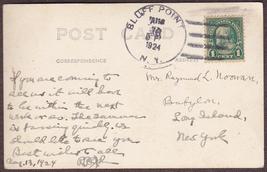 POST CARD
BLUFF POINT
AUG
13
1924
N.Y.
1
1
CORRESPONDENCE
If you are coming to
see us it will have
to be within the next
week or so. The summer
is passing quickly. We
should like to see you
Best wishes to all
Aug. 13, 1924
Mr. Raymond L. Noonan,
Babylon,
Long Island,
New York